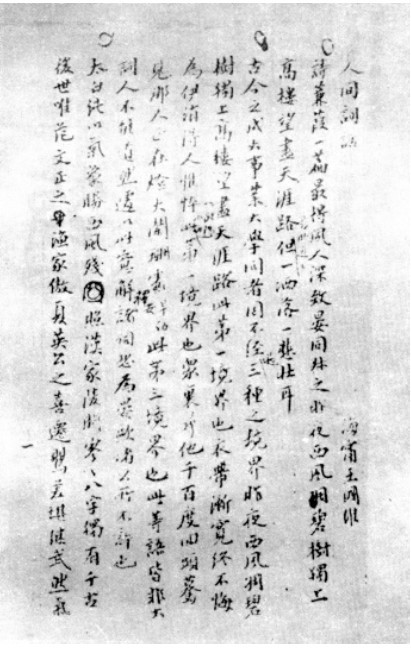 人间詞話
海甯王國維
詩蒹葭一篇最得風人深致晏同叔之昨夜西風凋碧樹獨上
高樓望盡天涯路但一洒落一悲壯耳
古今之成大事業大學問者罔不經三種之境界昨夜西風凋碧
樹獨上高樓望盡天涯路此第一境界也衣帶漸寬終不悔
為伊消得人憔悴此第二境界也眾裏尋他千百度回頭驀
見那人正在燈火闌珊處此第三境界也此等語皆非大
詞人不能道然遽以此意解諸詞恐為晏歐諸公所不許也
太白純以氣象勝西風殘照漢家陵闕寥寥八字獨有千古
後世唯范文正之漁家傲夏英公之喜遷鶯差堪繼武然氣
一